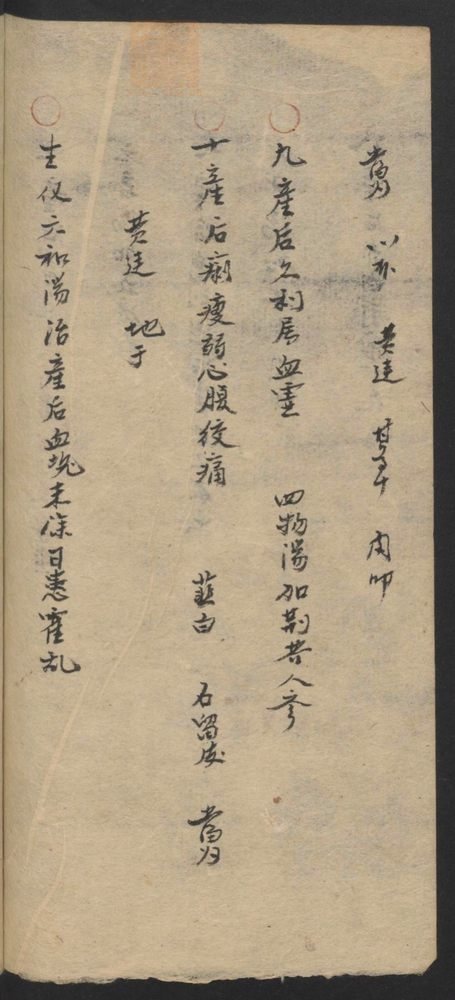 當归 川芎 黄連 甘草 肉叩
九產后久利屬血虛 四物湯加荆芥人參
十產后痢瘦弱心腹绞痛 薤白 石留皮 當归
黄連 地于
生仪六和湯治產后血塊未除日患霍乱